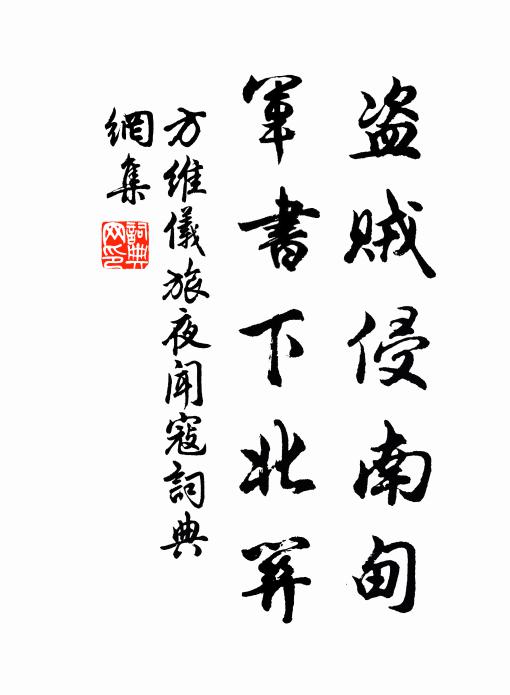 盗贼侵南甸
軍書下北關
方維儀旅夜聞寇詞典
網集
詞典網印